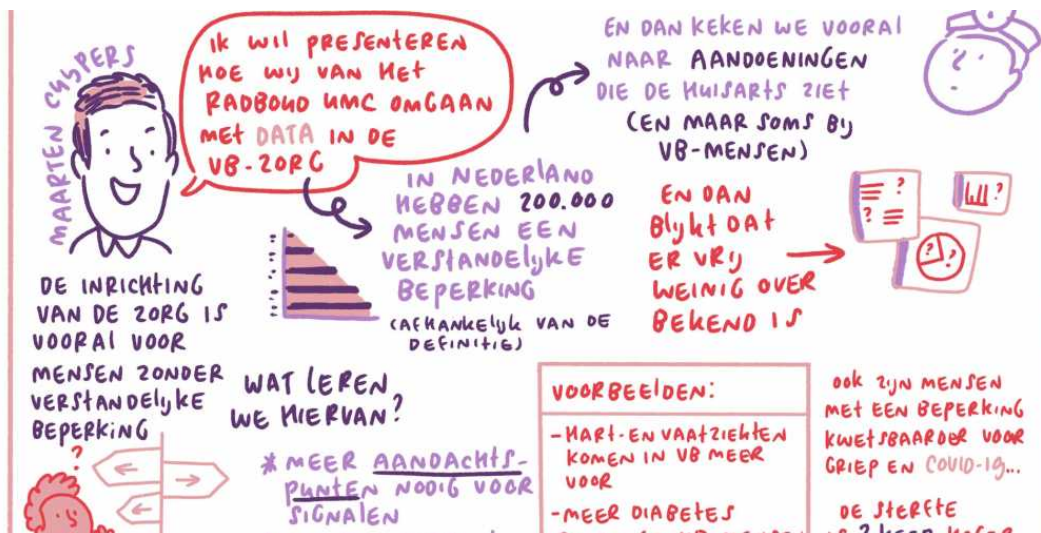 MAARTEN CUYPERS
IK WIL PRESENTEREN
HOE WIJ VAN HET
RADBOUD UMC OMGAAN
MET DATA IN DE
VB-ZORG
EN DAN KEKEN WE VOORAL
NAAR AANDOENINGEN
DIE DE HUISARTS ZIET
(EN MAAR SOMS BIJ
VB-MENSEN)
IN NEDERLAND
HEBBEN 200.000
MENSEN EEN
VERSTANDELIJKE
BEPERKING
(AFHANKELIJK VAN DE
DEFINITIE)
EN DAN
BLIJKT DAT
ER VRIJ
WEINIG OVER
BEKEND IS
? ?
?
? ?
DE INRICHTING
VAN DE ZORG IS
VOORAL VOOR
MENSEN ZONDER
VERSTANDELIJKE
BEPERKING
?
WAT LEREN
WE HIERVAN?
* MEER AANDACHTS-
PUNTEN NODIG VOOR
SIGNALEN
VOORBEELDEN:
- HART- EN VAATZIEKTEN
KOMEN IN VB MEER
VOOR
- MEER DIABETES
OOK ZIJN MENSEN
MET EEN BEPERKING
KWETSBAARDER VOOR
GRIEP EN COVID-19...
DE STERFTE